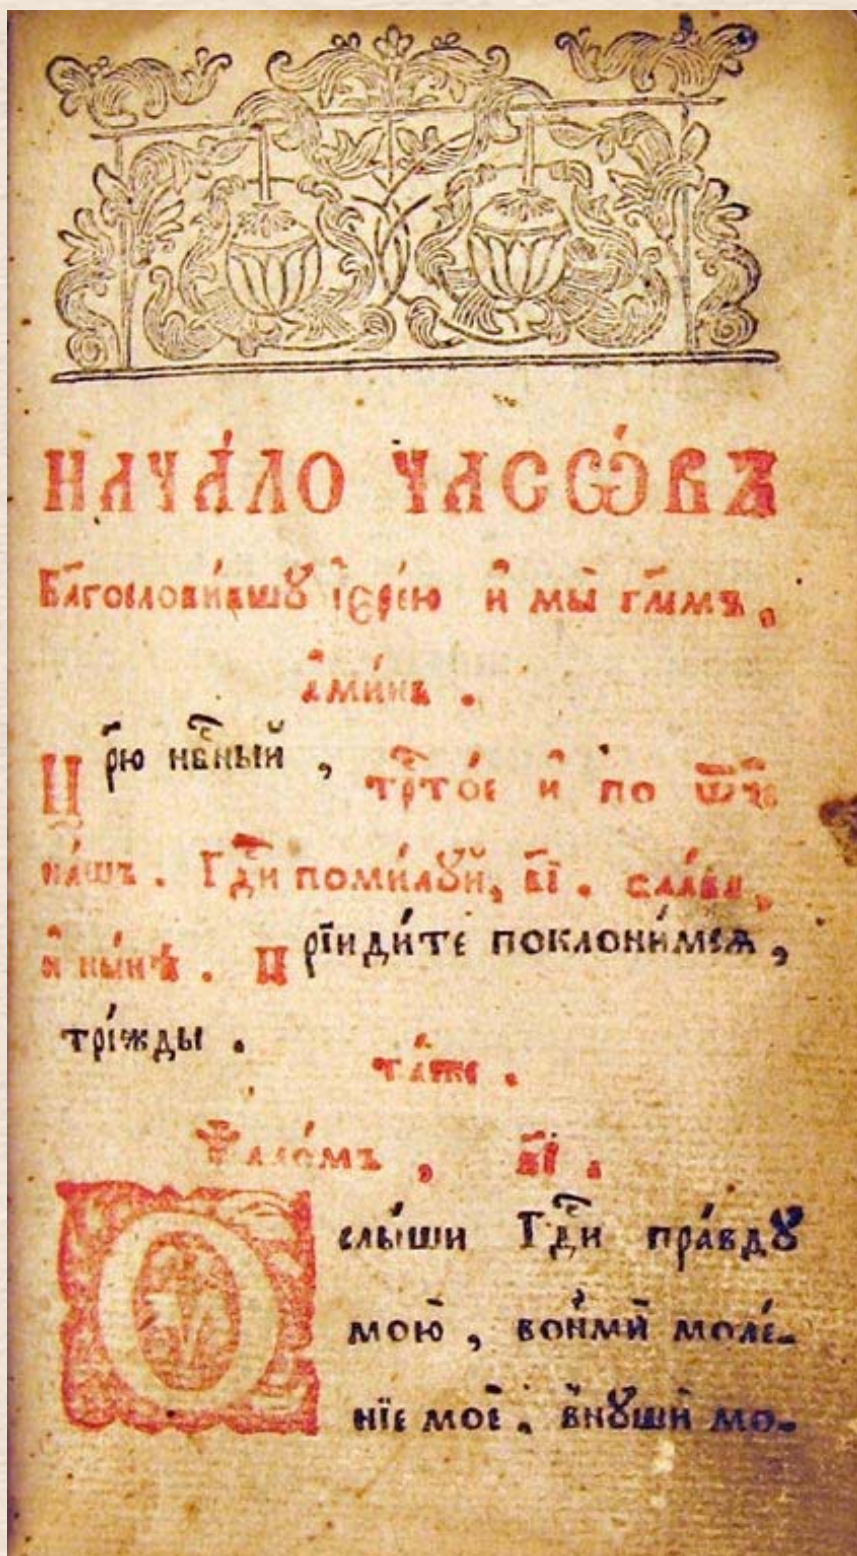 НАЧА́ЛО ЧАСѠ́ВЪ
Бл҃гослови́вшꙋ і҆ере́ю и҆ мы̀ гл҃емъ,
а҆ми́нь .
Цр҃ю нбⷭ҇ный , трⷭ҇то́е и҆ по ѿч҃е
на́шъ . Гдⷭ҇и поми́лꙋй, в҃і . сла́ва,
и҆ ны́нѣ . Прїиди́те поклони́мсѧ ,
три́жды .
та́же .
Ѱало́мъ ,
Ѹслы́ши Гдⷭ҇и пра́вдꙋ
мою̀ , вонмѝ моле́-
нїе моѐ . внꙋшѝ мо-